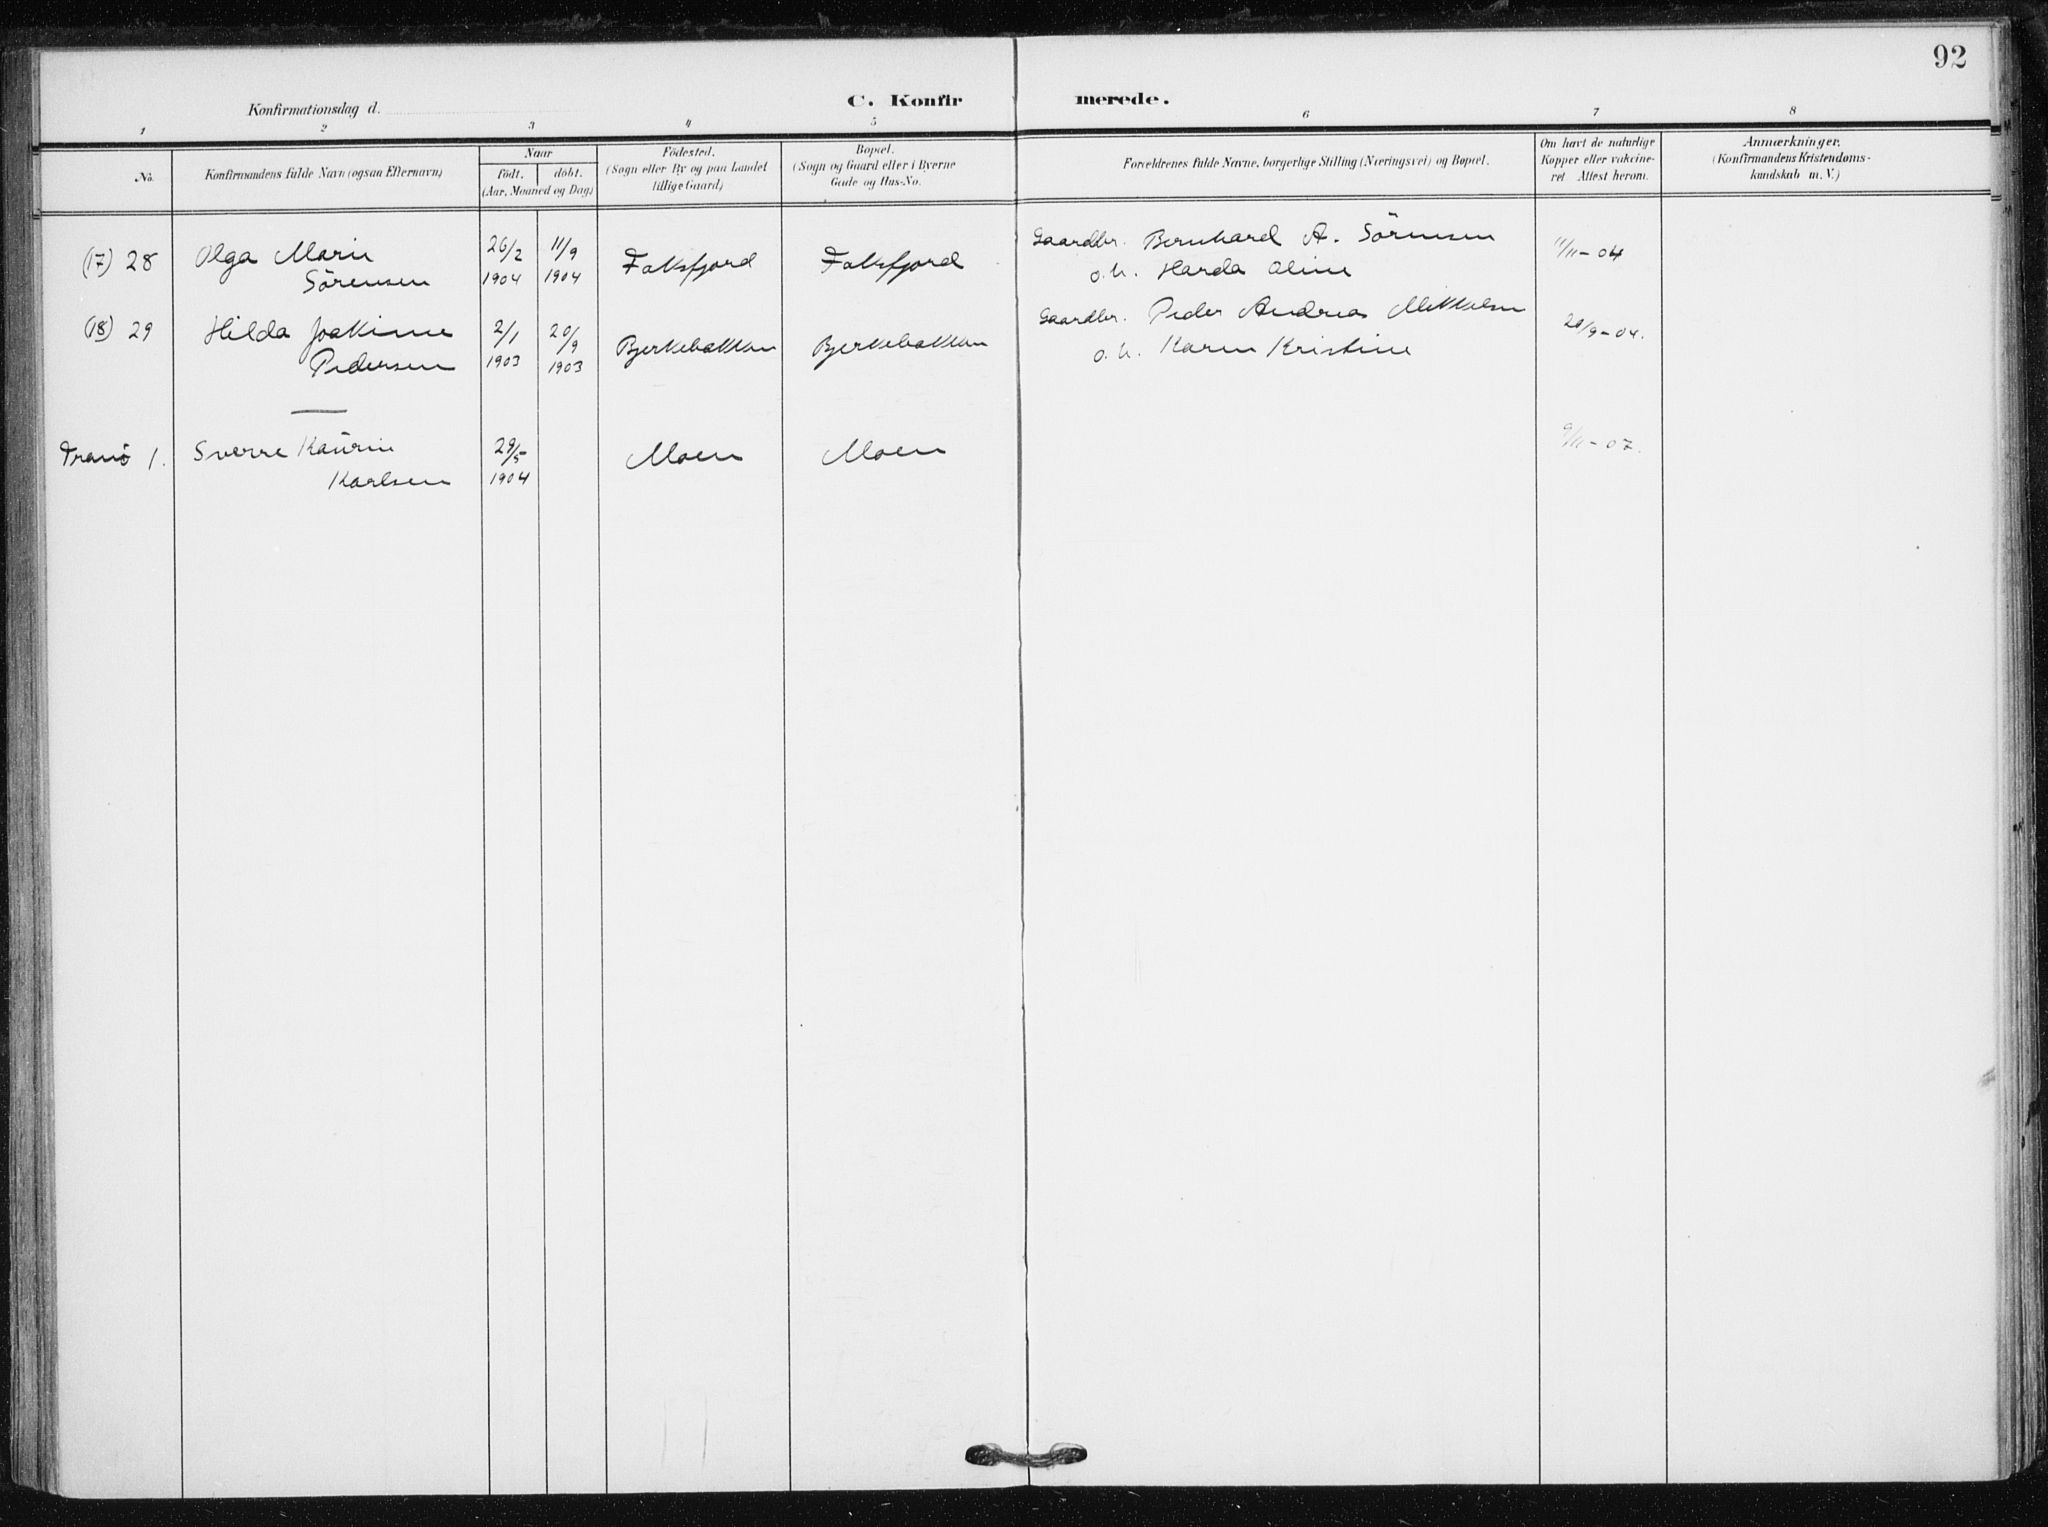 92
Konfirmationsdag d.
C. Konfir merede.
1 2 3 4 5 6 7 8
No.
Konfirmandens fulde Navn (ogsaa Efternavn)
Naar
født. døbt.
(Aar, Maaned og Dag)
Fødested.
(Sogn eller By og paa Landet
tillige Gaard)
Bopæl.
(Sogn og Gaard eller i Byerne
Gade og Hus-No.
Forældrenes fulde Navne, borgerlige Stilling (Næringsvei) og Bopæl.
Om havt de naturlige
Kopper eller vakcine-
ret Attest herom.
Anmærkninger.
(Konfirmandens Kristendoms-
kundskab m. V.)
(17) 28 Olga Marie 26/2 11/9 Faksfjord Faksfjord Gaardbr. Bernhard A. Sörensen 11/11-04
Sörensen 1904 1904 o.h. Harda Oline
(18) 29 Hilda Joakime 2/1 20/9 Bjerkebakken Bjerkebakken Gaardbr. Peder Andreas Mikkelsen 20/9-04.
Pedersen 1903 1903 o.h. Karen Kristine
Tranö 1. Sverre Kaurin 29/5 Moen Moen 9/11-07.
Karlsen 1904